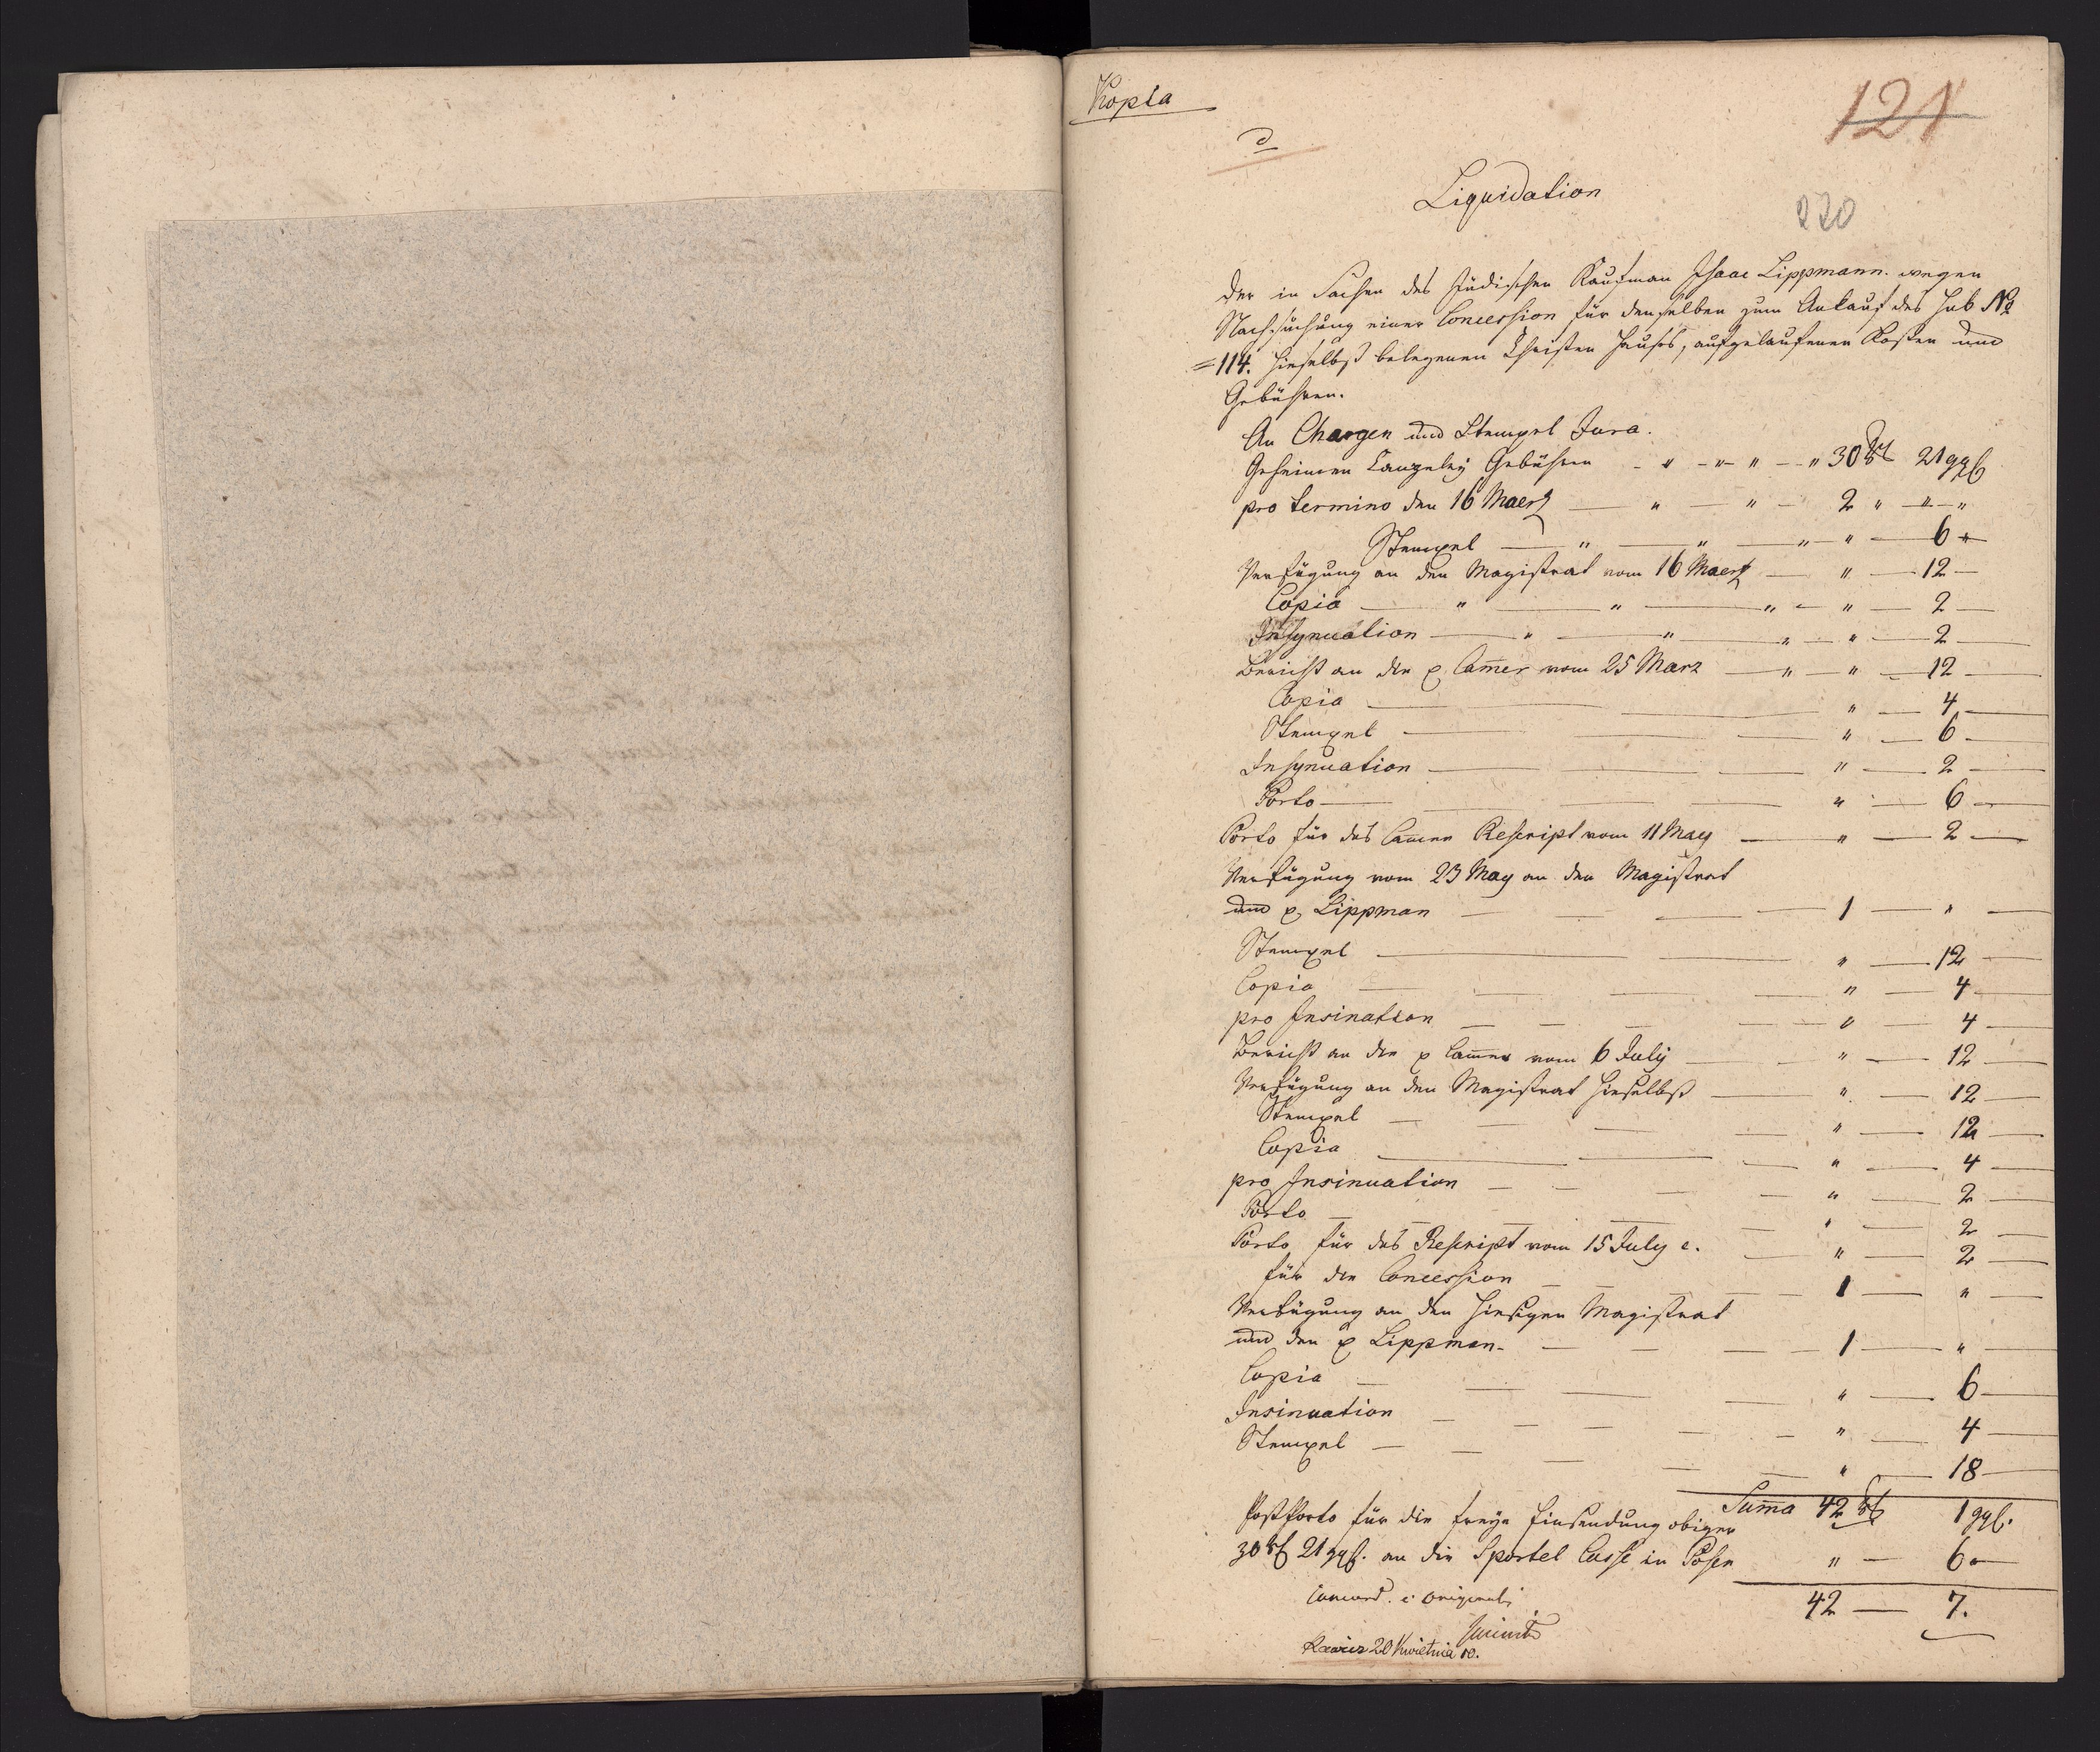 Kopia
121
D
Liquidation
220
der in Sachen des jüdischen Kaufman Isaac Lippmann. wegen
Nachsuchung einer Concession für denselben zum Ankauf des sub No
=114. hieselbst belegenen Christen Hauses, aufgelaufenen Kosten und
Gebühren.
An Chargen und Stempel Jura.
Geheimen Canzeley Gebühren - " - " - " - " 30 rtl 21 ggl
pro termino den 16 Maerz — " — " - 2 " — " — "
Stempel — " — " — " — " — 6 "
Verfügung an den Magistrat vom 16 Maerz — " — 12 —
Copia — " — " — " — " — 2 —
Insynuation — " — " — " — " — 2
Bericht an die p Camer vom 25 Marz — " — " — 12 —
Copia — " — 4 —
Stempel — " — 6 —
Insynuation — " — 2 —
Porto — " — 6 —
Porto für das Camer Rescript vom 11 May — " — 2 —
Verfügung vom 23 May an den Magistrat
und p. Lippman — 1 — " —
Stempel — " — 12 —
Copia — " — 4 —
pro Insination — " — 4 —
Bericht an die p Camer vom 6 July — " — 12 —
Verfügung an den Magistrat hieselbst — " — 12 —
Stempel — " — 12 —
Copia — " — 4 —
pro Insinuation — " — 2 —
Porto — " — 2 —
Porto für das Rescript vom 15 July c. — " — 2 —
für die Concession — 1 — " —
Verfügung an den hiesigen Magistrat
und den p Lippman. — 1 — " —
Copia — " — 6 —
Insinuation — " — 4 —
Stempel — " — 18 —
Summa 42 rtl 1 ggl.
Postporto für die freye Einsendung obiger
30 rtl 21 ggl. an die Sportel Casse in Posen " — 6 —
42 — 7.
concord. c. originali
Rawicz 20 Kwietnia 10.